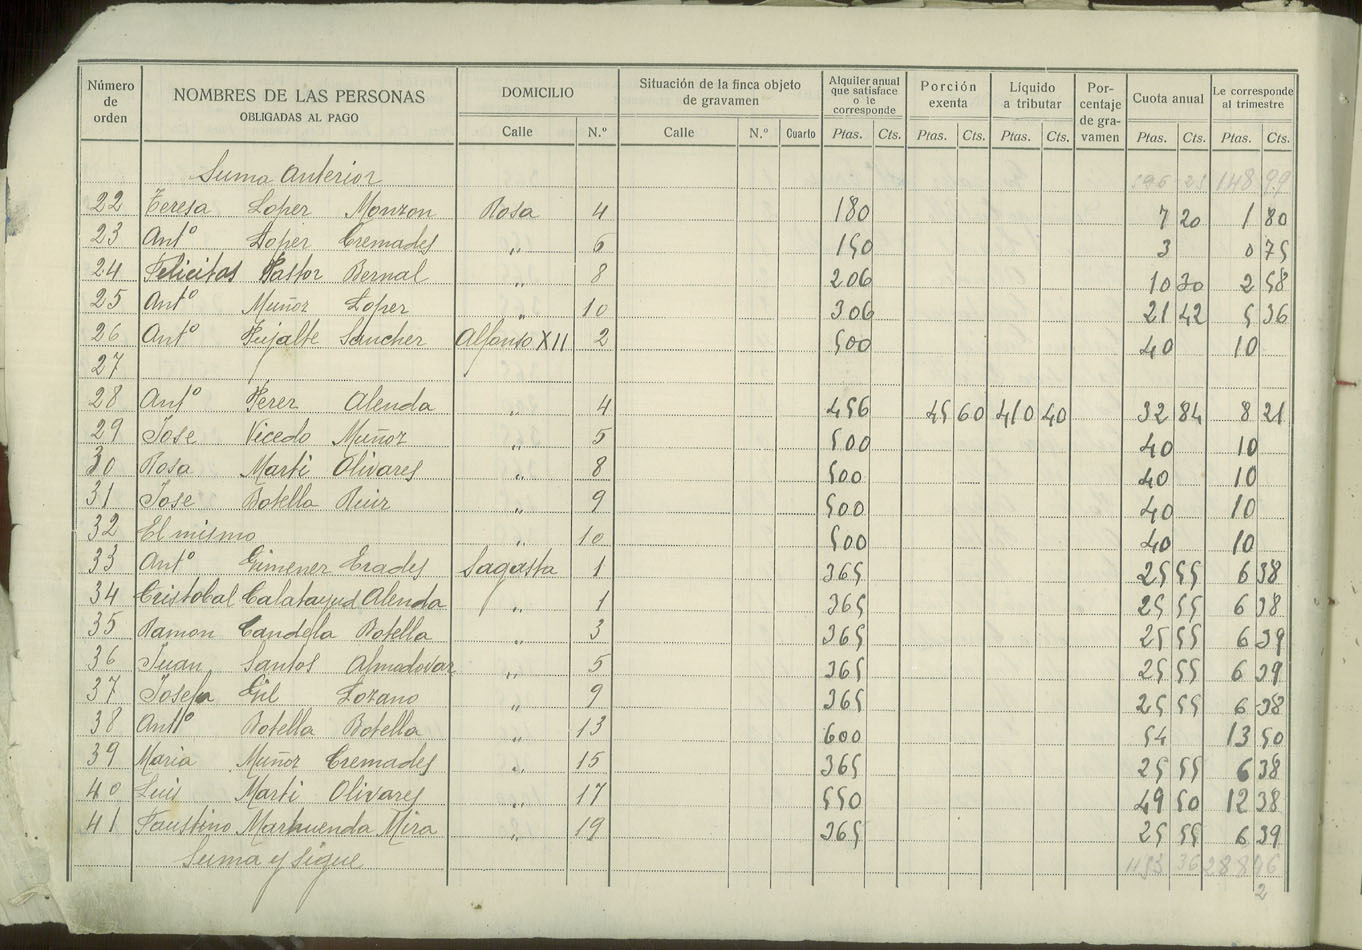 Número de orden NOMBRES DE LAS PERSONAS OBLIGADAS AL PAGO DOMICILIO Situación de la finca objeto de gravamen Alquiler anual que satisface o le corresponde Porción exenta Líquido a tributar Por-centaje de gra-vamen Cuota anual Le corresponde al trimestre
Calle N.º Calle N.º Cuarto Ptas. Cts. Ptas. Cts. Ptas. Cts. Ptas. Cts. Ptas. Cts.
Suma Anterior 148 99
22 Teresa Lopez Monzon Rosa 4 180 7 20 1 80
23 Antº Lopez Cremades " 6 150 3 0 75
24 Felicitas Pastor Bernal " 8 206 10 30 2 58
25 Antº Muñoz Lopez " 10 306 21 42 5 36
26 Antº Pujalte Sanchez Alfonso XII 2 500 40 10
27
28 Antº Perez Alenda " 4 456 45 60 410 40 32 84 8 21
29 Jose Vicedo Muñoz " 5 500 40 10
30 Rosa Marti Olivares " 8 500 40 10
31 Jose Botella Ruiz " 9 500 40 10
32 El mismo " 10 500 40 10
33 Antº Gimenez Erades Sagasta 1 365 25 55 6 38
34 Cristobal Calatayud Alenda " 1 365 25 55 6 38
35 Ramon Candela Botella " 3 365 25 55 6 39
36 Juan Santos Almodovar " 5 365 25 55 6 39
37 Josefa Gil Lozano " 9 365 25 55 6 38
38 Antº Botella Botella " 13 600 54 13 50
39 Maria Muñoz Cremades " 15 365 25 55 6 38
40 Luis Marti Olivares " 17 550 49 50 12 38
41 Faustino Marhuenda Mira " 19 365 25 55 6 39
Suma y sigue 36 288
2